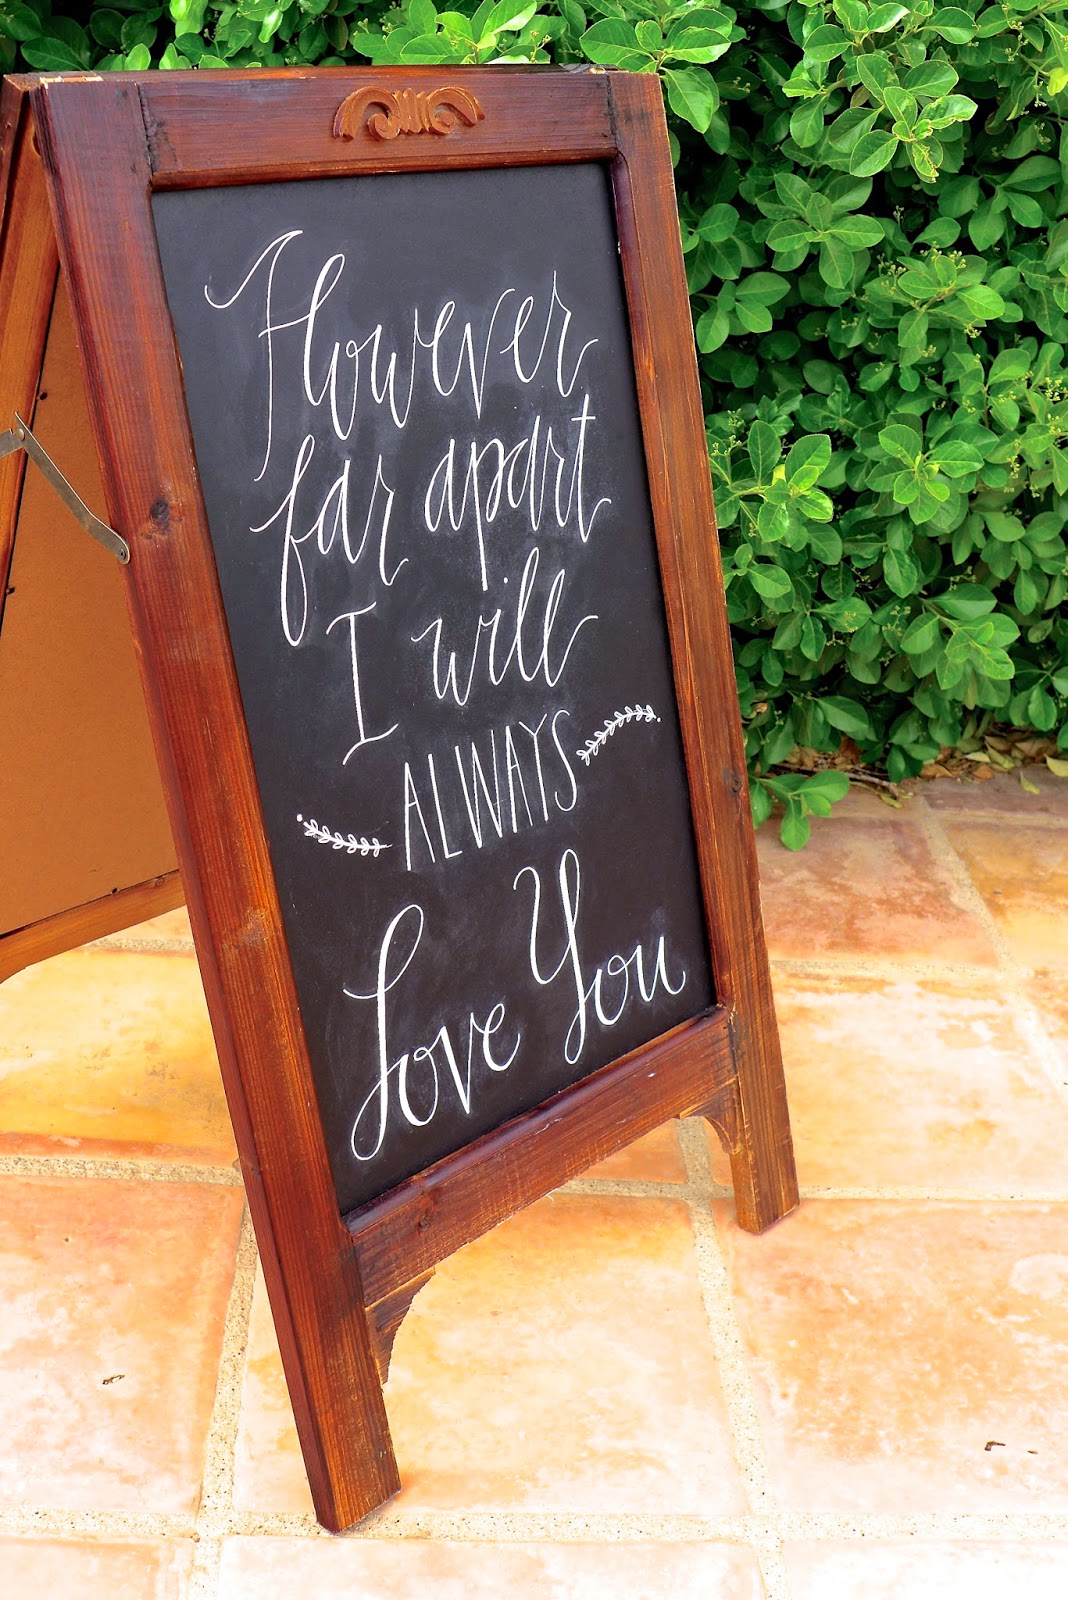 However
far apart
I will
ALWAYS
Love You